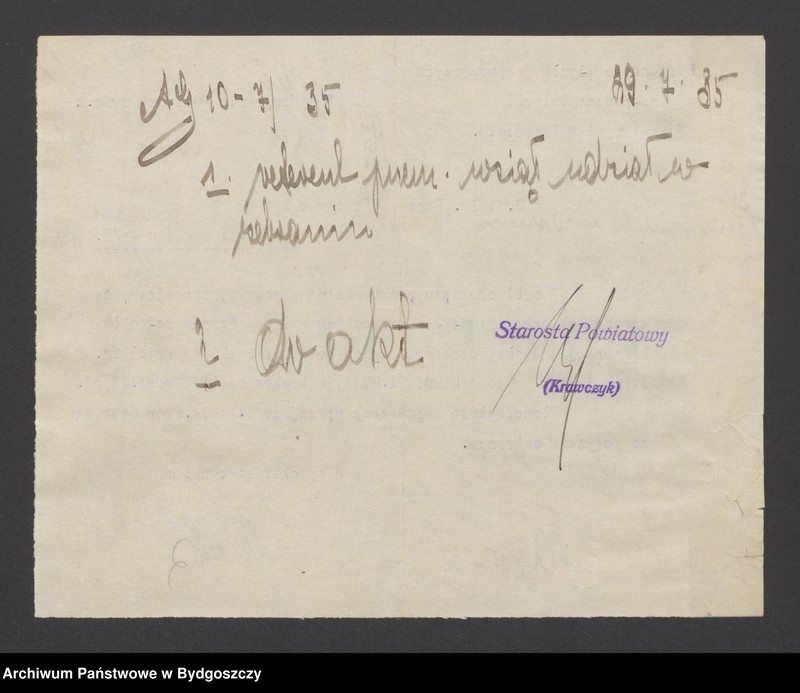 10-7/35 29.7.35
1. referent przem. wziął udział w
zebraniu
2 do akt
Starosta Powiatowy
(Krawczyk)
Archiwum Państwowe w Bydgoszczy